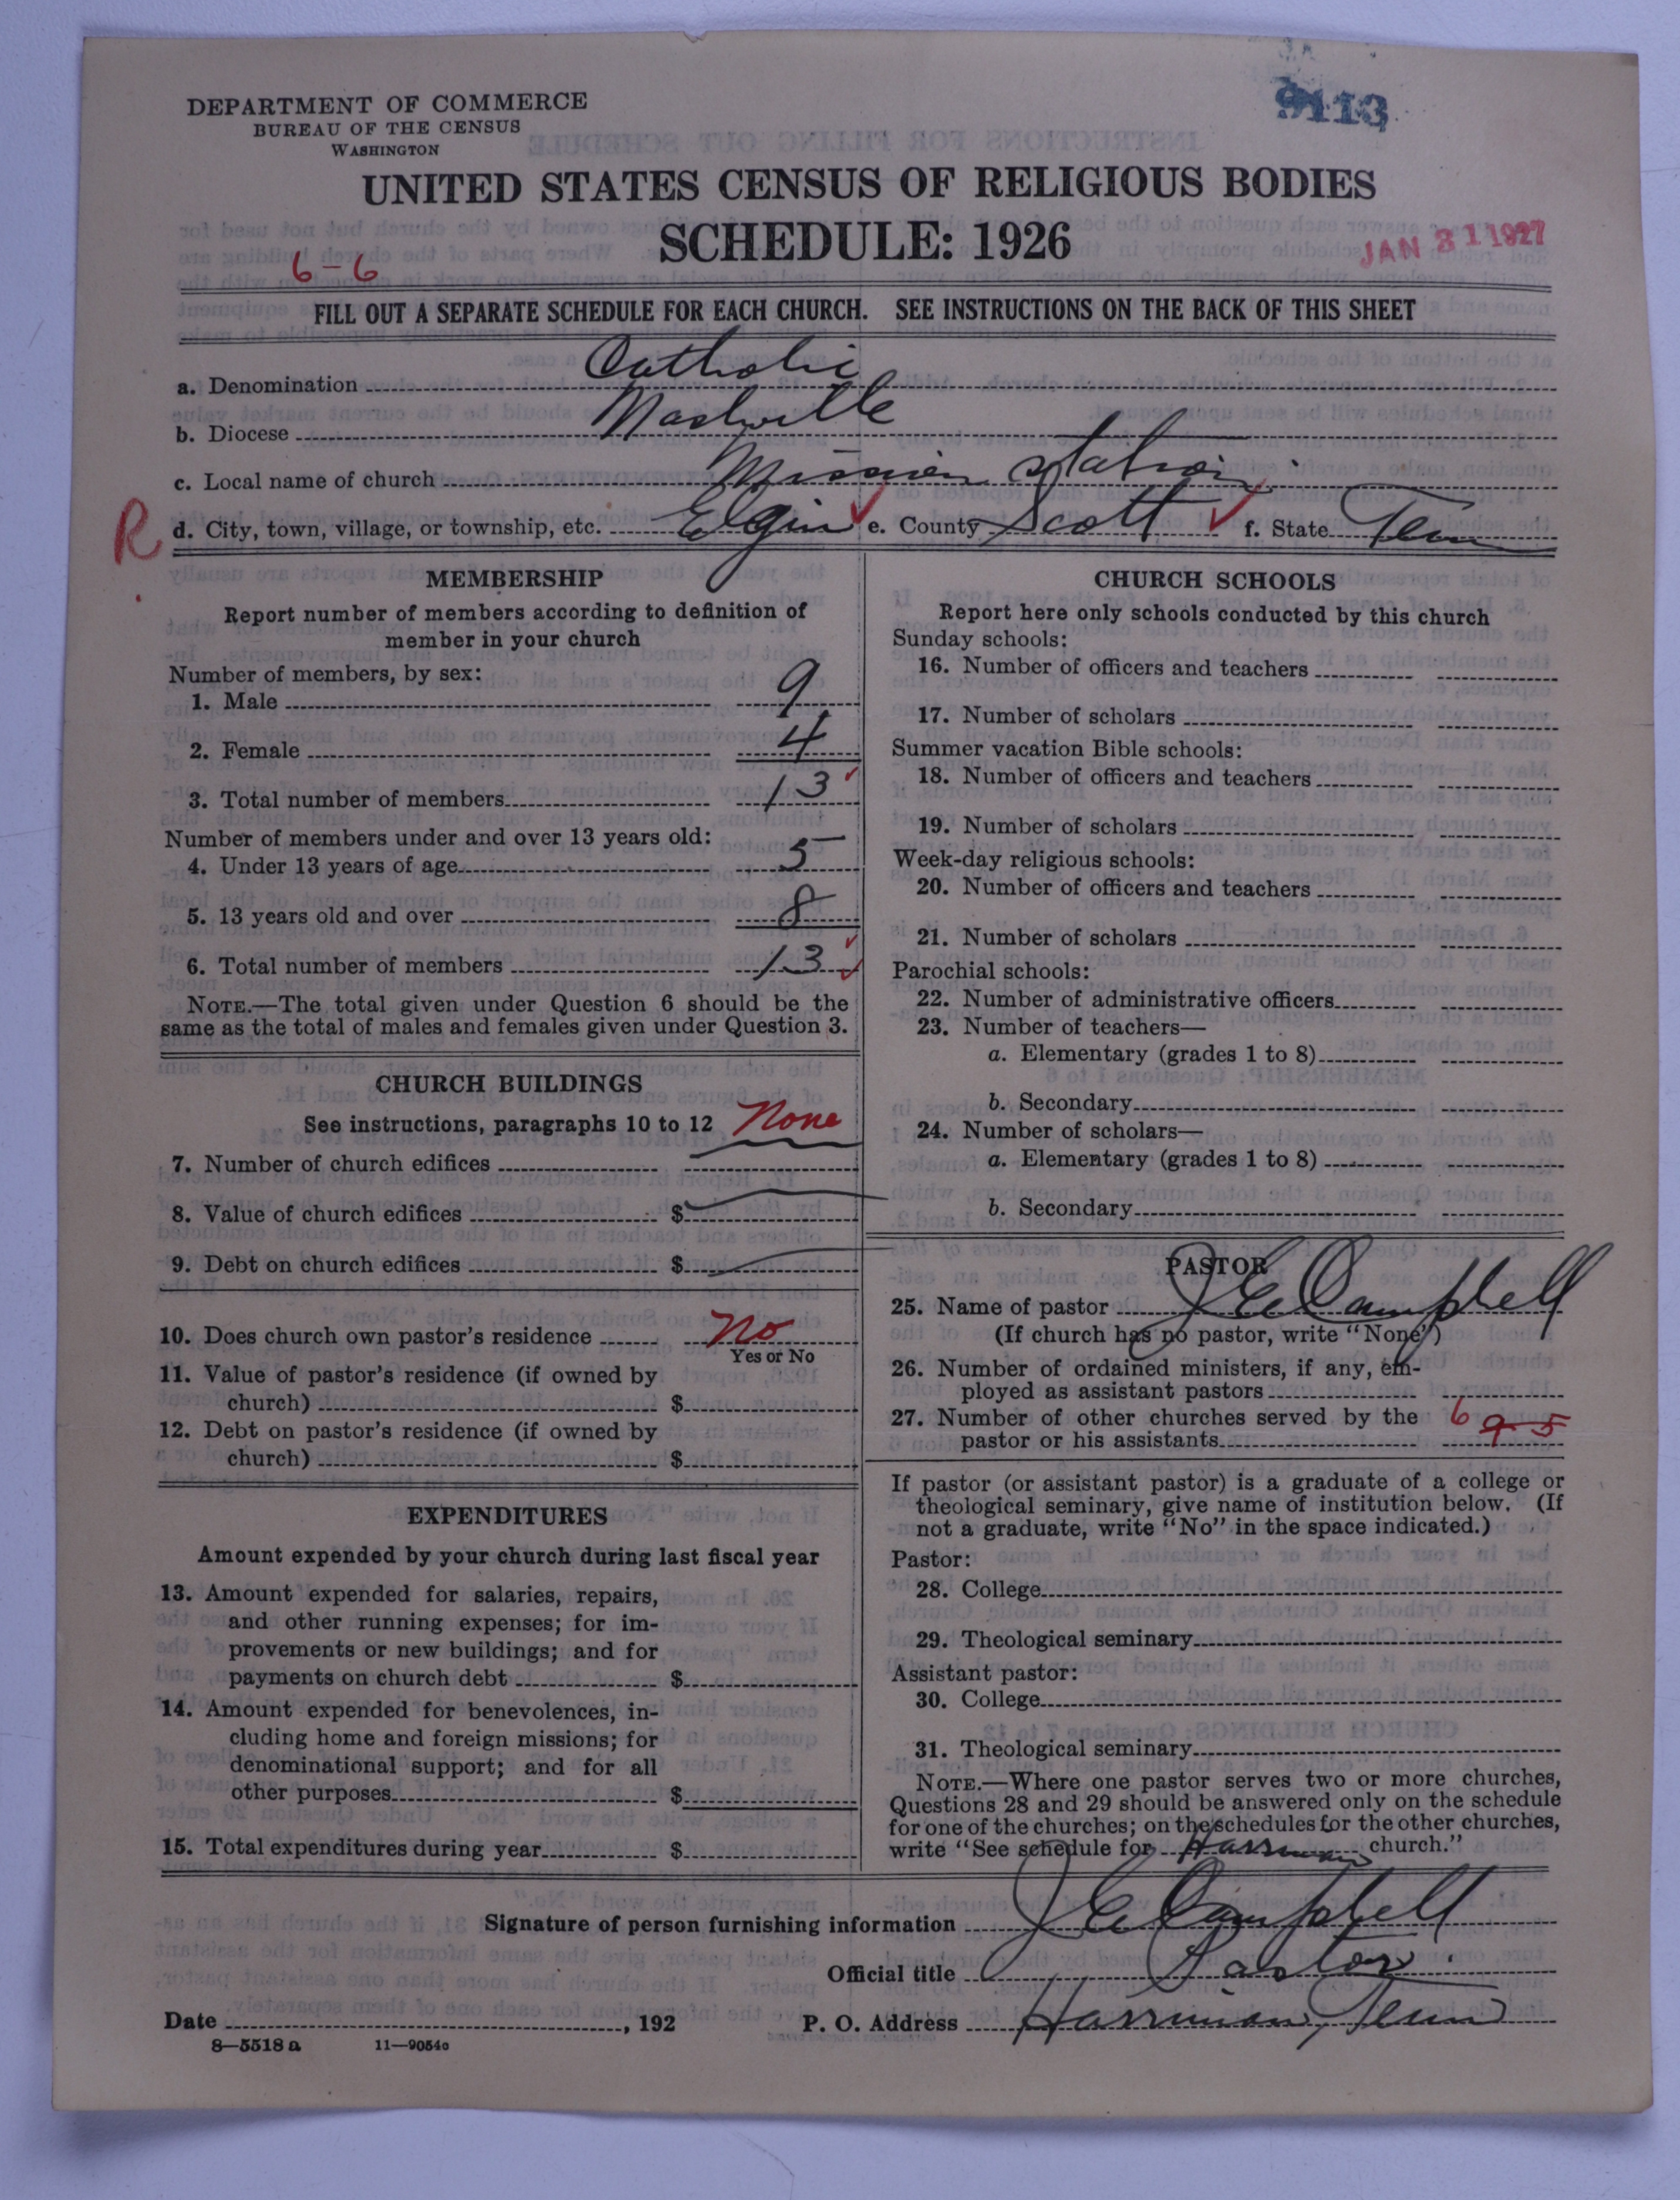 9113
DEPARTMENT OF COMMERCE
BUREAU OF THE CENSUS
WASHINGTON
UNITED STATES CENSUS OF RELIGIOUS BODIES
SCHEDULE: 1926
JAN 31 1927
6-6
FILL OUT A SEPARATE SCHEDULE FOR EACH CHURCH. SEE INSTRUCTIONS ON THE BACK OF THIS SHEET
a. Denomination Catholic
b. Diocese Nashville
c. Local name of church Mission Station
R d. City, town, village, or township, etc. Elgin e. County Scott f. State Tenn
MEMBERSHIP
Report number of members according to definition of
member in your church
Number of members, by sex:
1. Male 9
2. Female 4
3. Total number of members 13
Number of members under and over 13 years old:
4. Under 13 years of age 5
5. 13 years old and over 8
6. Total number of members 13
NOTE.—The total given under Question 6 should be the
same as the total of males and females given under Question 3.
CHURCH BUILDINGS
See instructions, paragraphs 10 to 12 None
7. Number of church edifices
8. Value of church edifices $
9. Debt on church edifices $
10. Does church own pastor's residence No
Yes or No
11. Value of pastor's residence (if owned by
church) $
12. Debt on pastor's residence (if owned by
church) $
EXPENDITURES
Amount expended by your church during last fiscal year
13. Amount expended for salaries, repairs,
and other running expenses; for im-
provements or new buildings; and for
payments on church debt $
14. Amount expended for benevolences, in-
cluding home and foreign missions; for
denominational support; and for all
other purposes $
15. Total expenditures during year $
CHURCH SCHOOLS
Report here only schools conducted by this church
Sunday schools:
16. Number of officers and teachers
17. Number of scholars
Summer vacation Bible schools:
18. Number of officers and teachers
19. Number of scholars
Week-day religious schools:
20. Number of officers and teachers
21. Number of scholars
Parochial schools:
22. Number of administrative officers
23. Number of teachers—
a. Elementary (grades 1 to 8)
b. Secondary
24. Number of scholars—
a. Elementary (grades 1 to 8)
b. Secondary
PASTOR
25. Name of pastor J E Campbell
(If church has no pastor, write "None")
26. Number of ordained ministers, if any, em-
ployed as assistant pastors
27. Number of other churches served by the 6
pastor or his assistants
If pastor (or assistant pastor) is a graduate of a college or
theological seminary, give name of institution below. (If
not a graduate, write "No" in the space indicated.)
Pastor:
28. College
29. Theological seminary
Assistant pastor:
30. College
31. Theological seminary
NOTE.—Where one pastor serves two or more churches,
Questions 28 and 29 should be answered only on the schedule
for one of the churches; on the schedules for the other churches,
write "See schedule for Harriman church."
Signature of person furnishing information J E Campbell
Official title Pastor.
Date , 192 P. O. Address Harriman, Tenn
8—5518 a 11—9054c